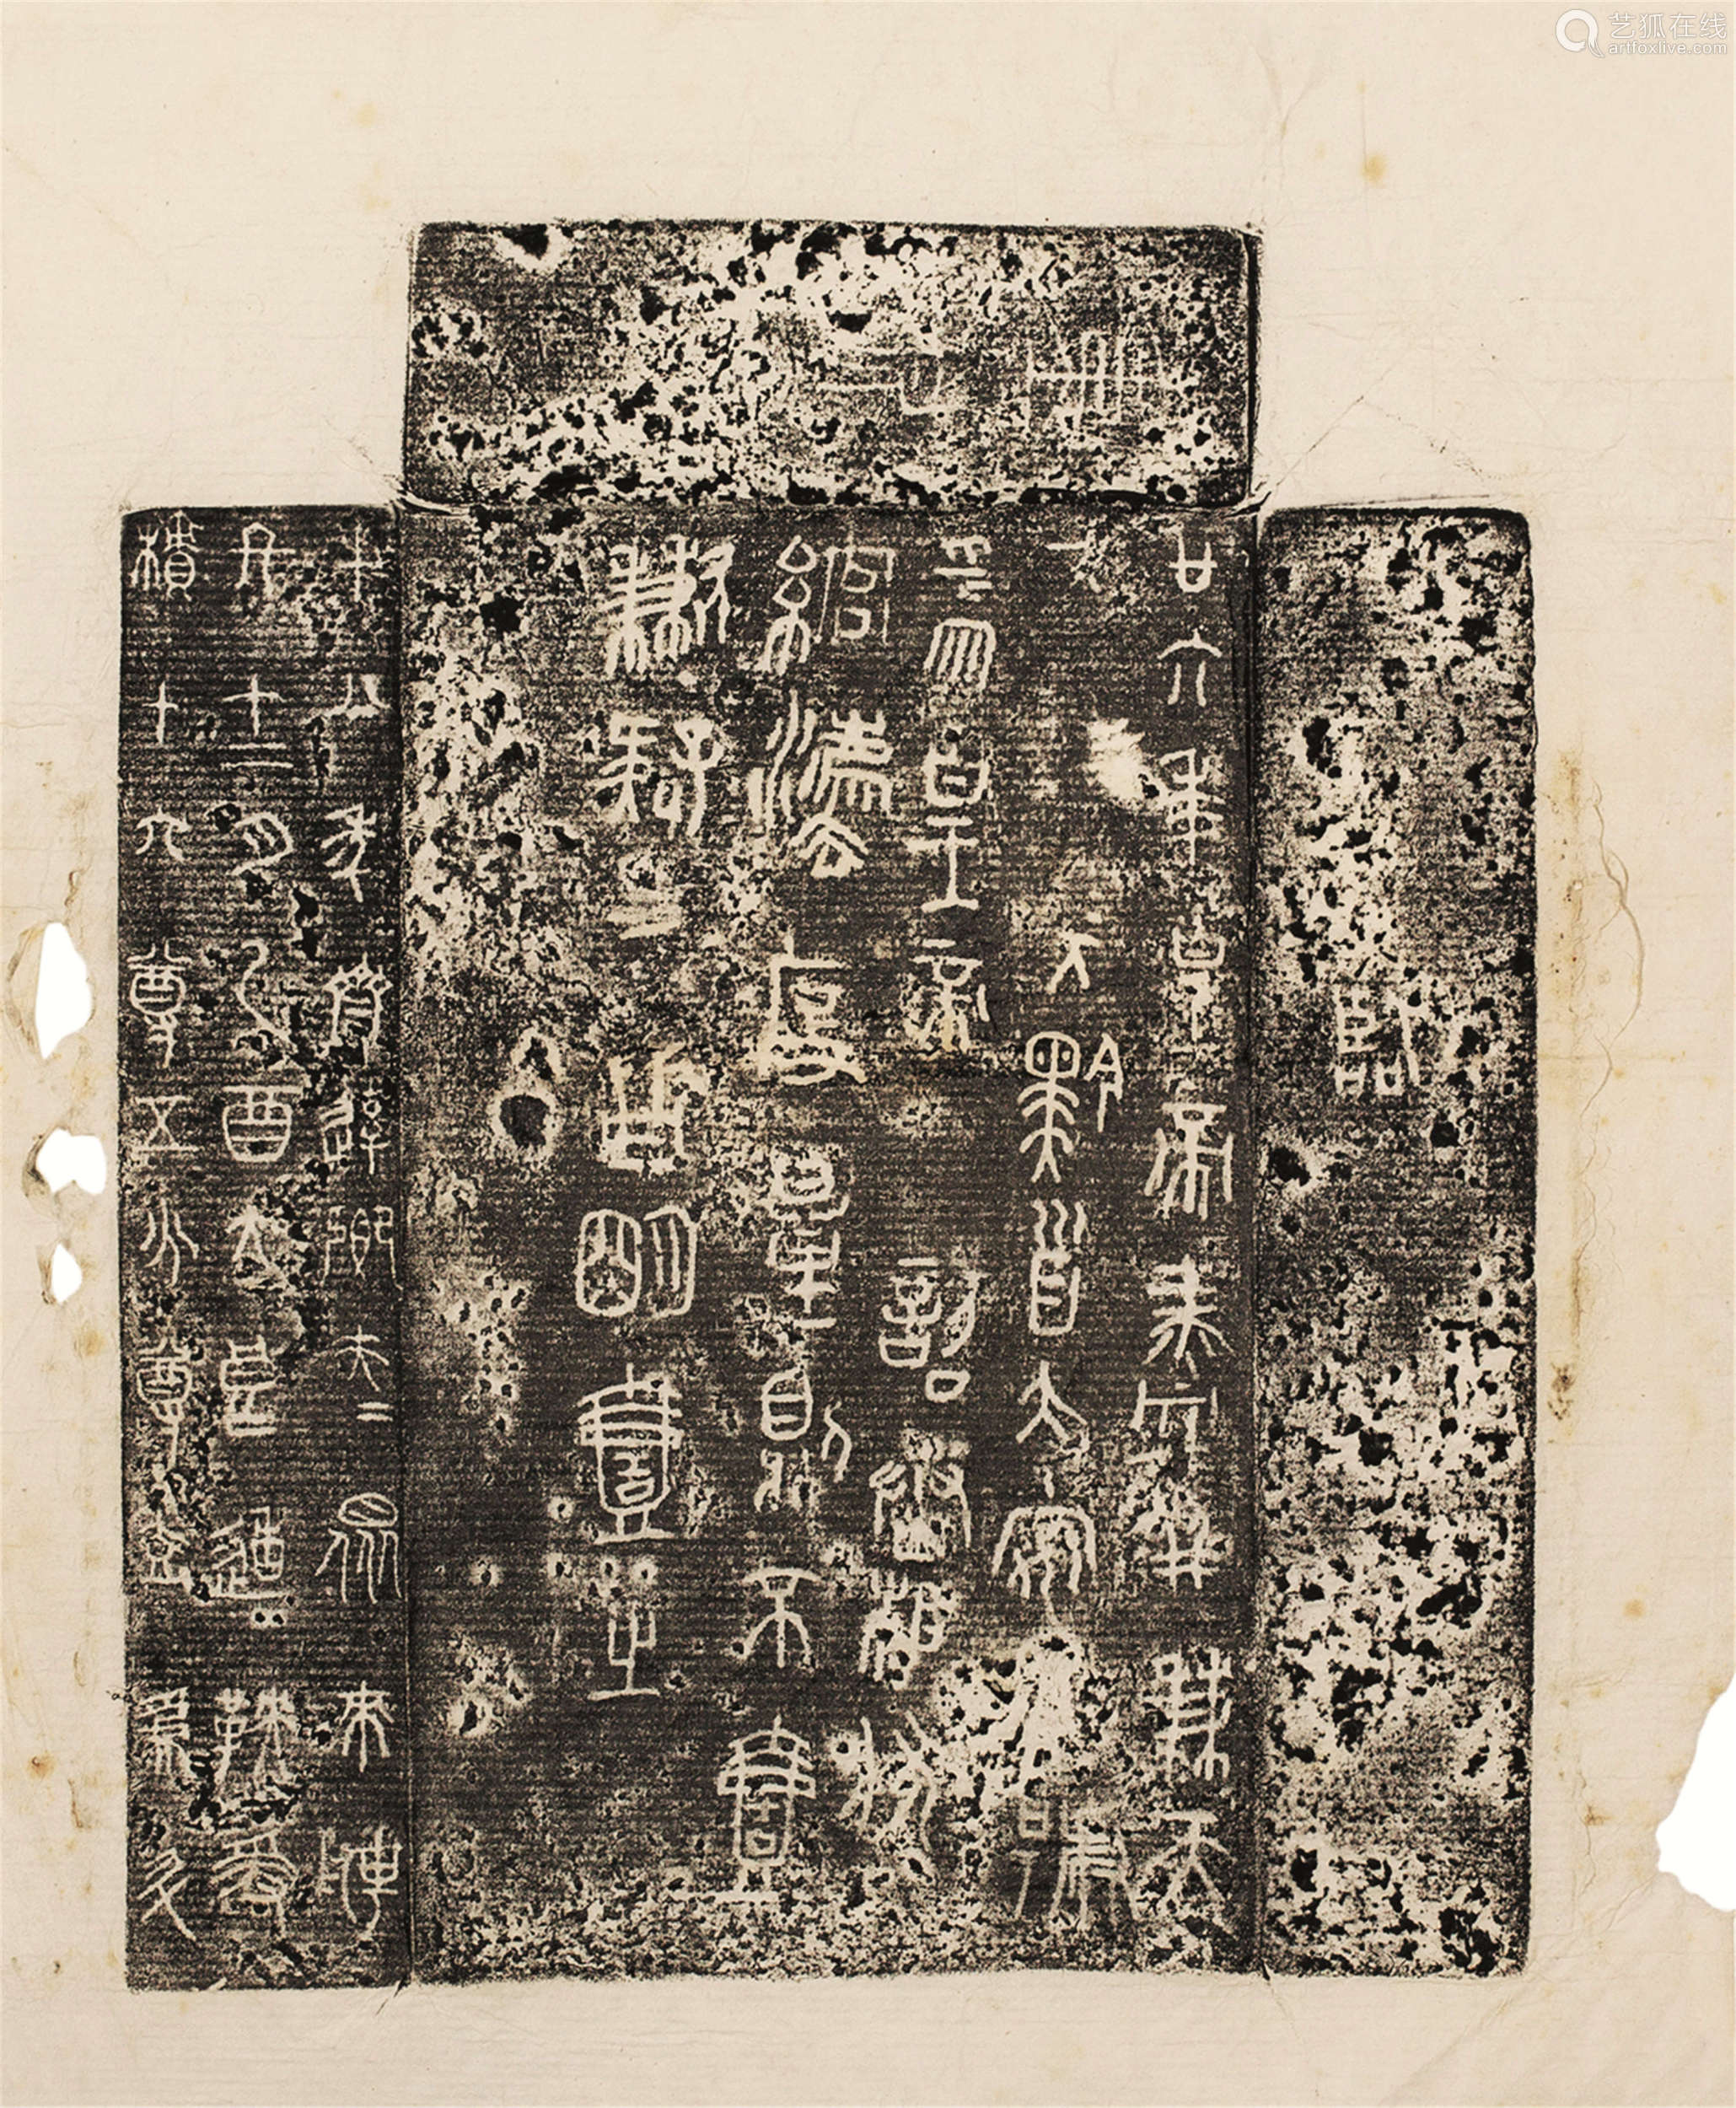 艺狐在线
artfoxlive.com
臨
廿六年皇帝盡并兼天
下侯黔首大安立號
為皇帝乃詔丞相狀
綰灋度量則不壹
歉疑者皆明壹之
十八年齊䢦卿夫=眾來聘
冬十二月乙酉大良造鞅爰
積十六尊五分尊壹為升